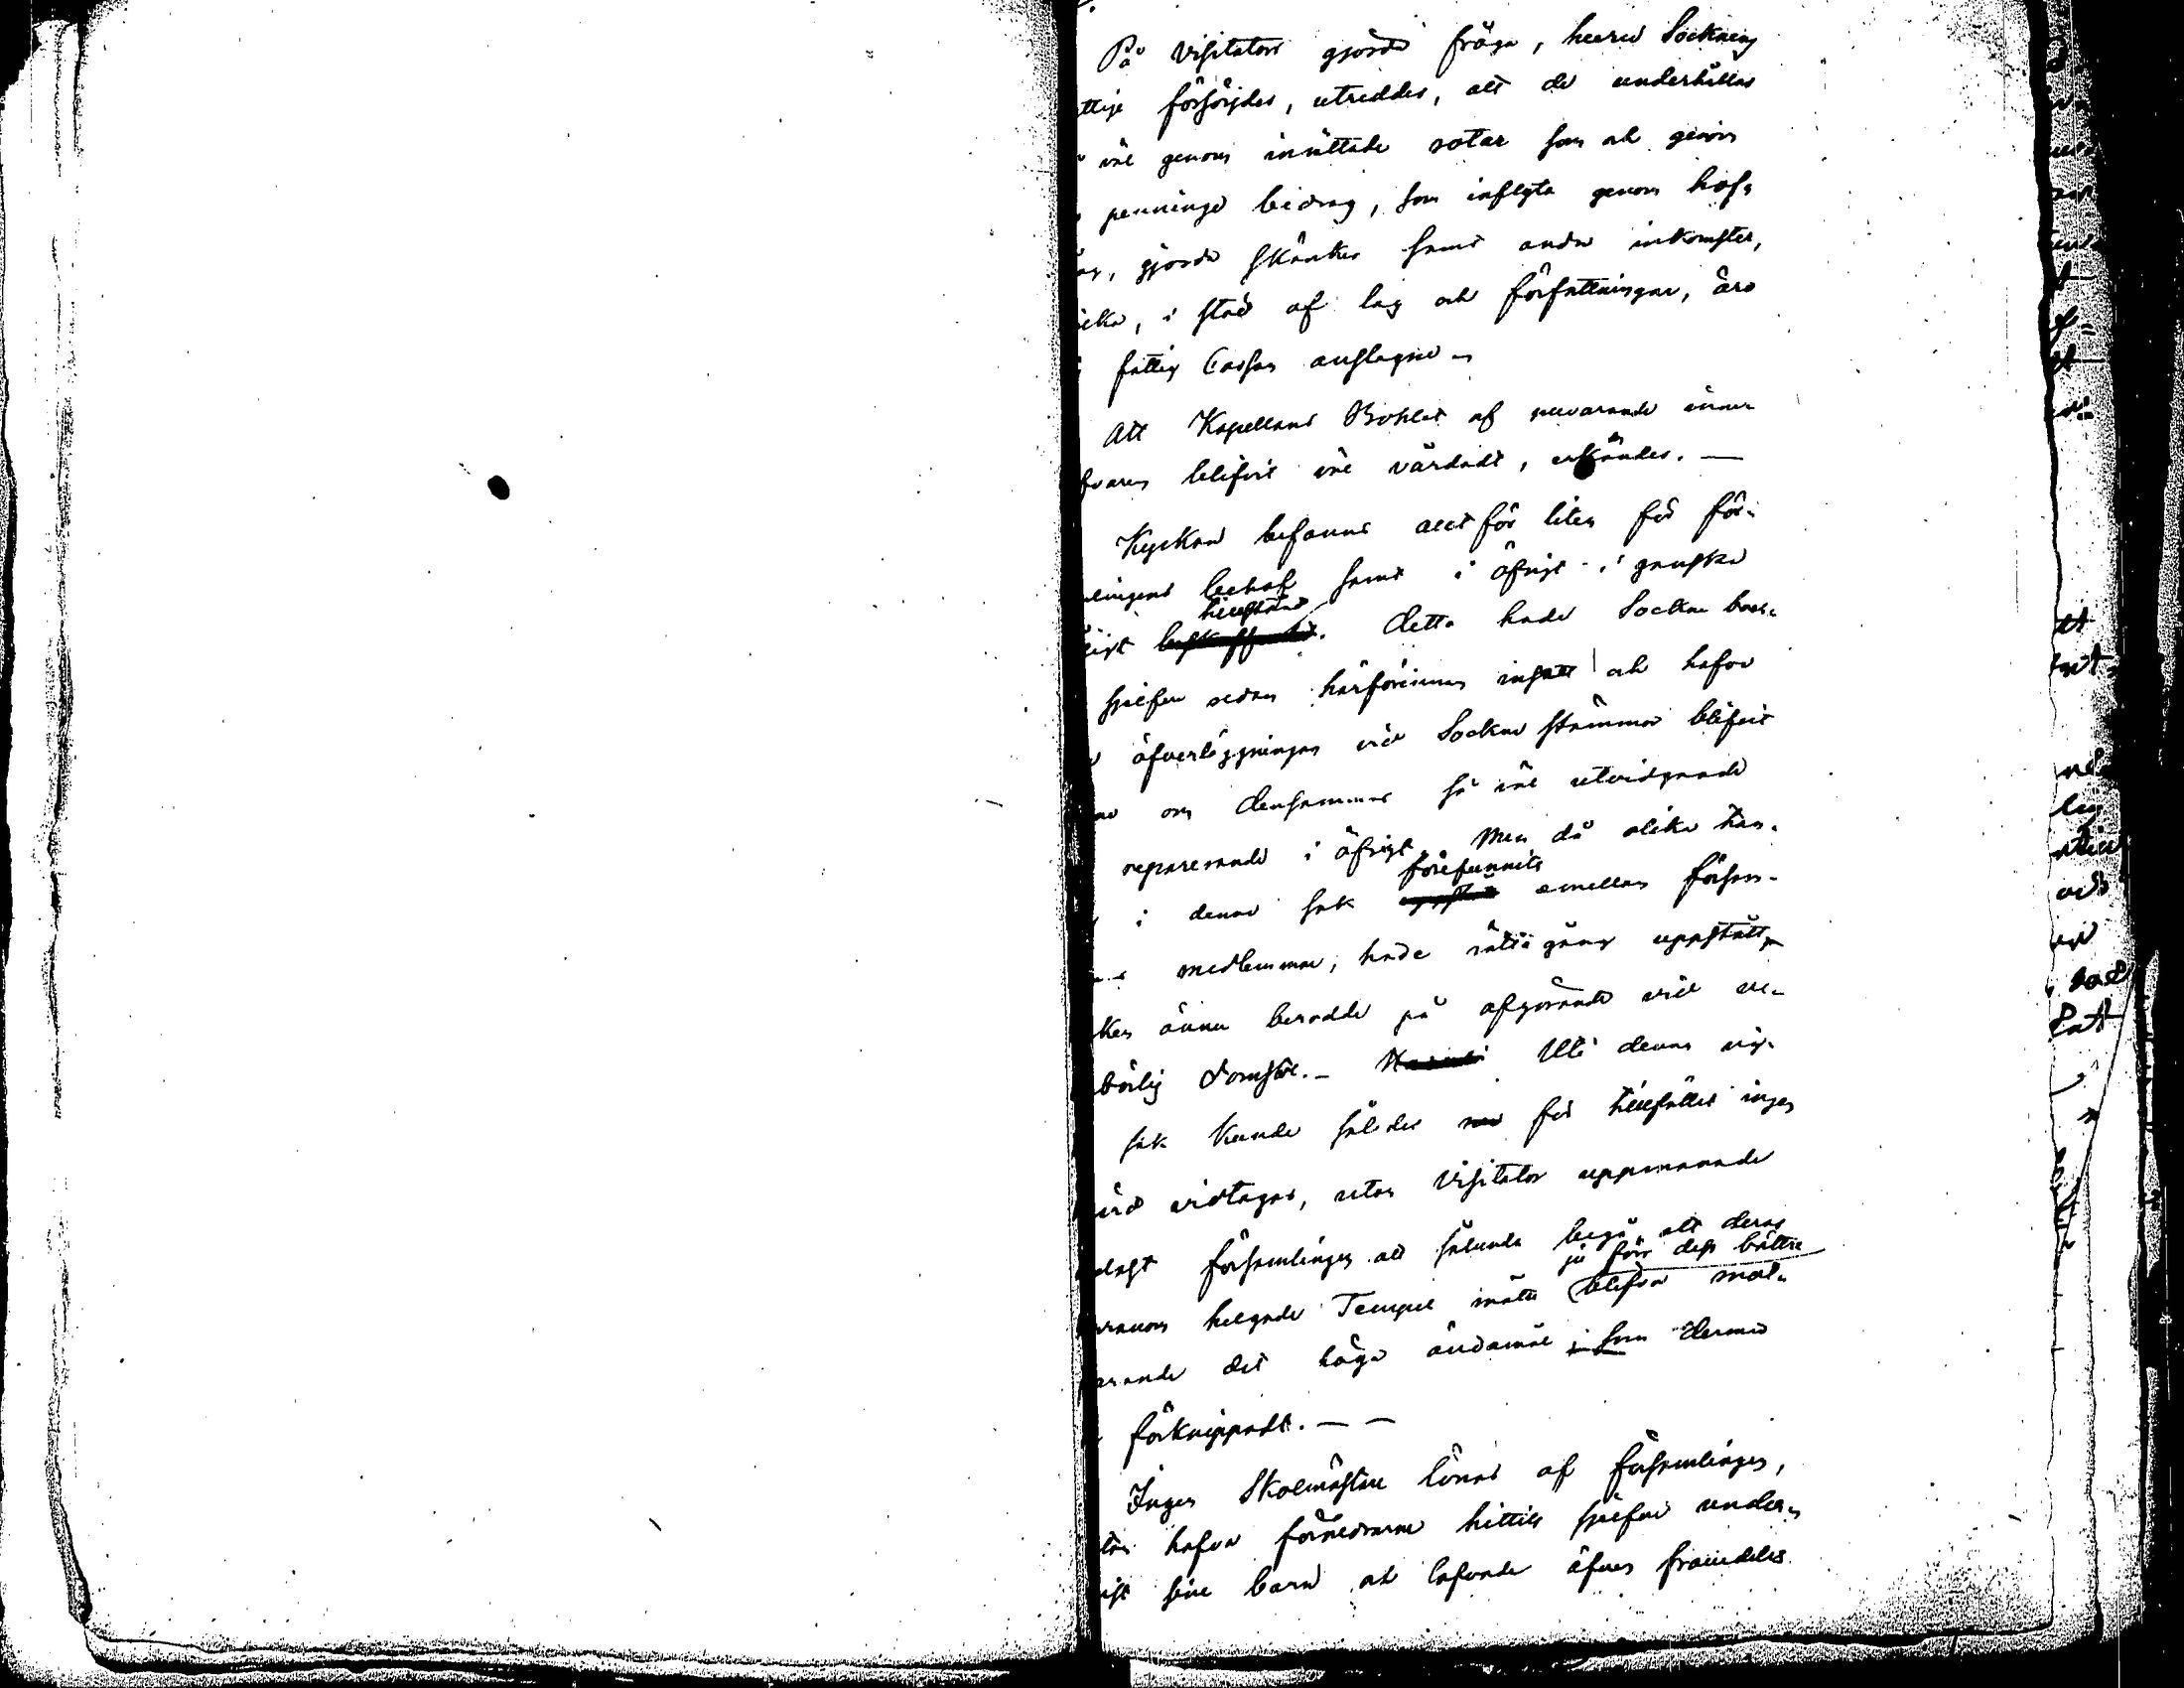 På Visitators gjorda fråga, huru Socknens
ttige försörjdes, utreddes, att de underhållas
väl genom inrättade rotar som ock genom
penninge bidrag, som inflyta genom håf-
gjorda skänker samt andra inkomster,
ilka, i stöd af lag och författningar, äro
fattig Cassan anslagne.
Att Kapellans Bohlet af nuvarande inne-
fvaren blifvit väl vårdadt, erkändes. —
Kyrkan befanns allt för liten för för-
mlingens behof samt i öfrigt i ganska
tillstånd
ligt. Detta hade Sockne boer-
sjelfve redan härförinnan insett och hafva
öfverläggningar vid Sockne stämmor blifvit
om densammas så väl utvidgande
reparerande i öfrigt. Men då olika tan-
förefunnits
i denna sak emellan försam-
medlemmar, hade rättegång uppstått,
ken ännu berodde på afgörande vid ve-
börlig domstol. — Uti denna vig-
sak kunde således för tillfället ingen
ärd vidtagas, utan Visitator uppmanade
dast församlingen att sålunda begå att deras
ju förr dess bättre
rranom helgade Tempel måtte blifva mot-
arande det höga ändamål som dermed
förknippadt. — —
Ingen Skolmästare lönas af församlingen,
tan hafva föräldrarne hittills sjelfve under-
ist sine barn och lofvade äfven framdeles